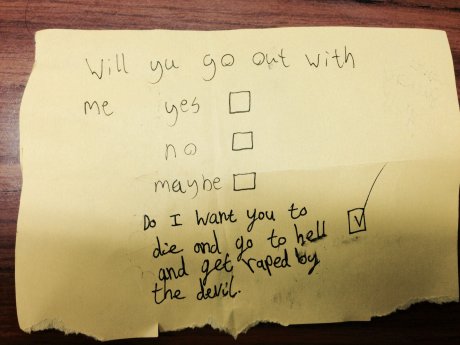 Will yu go out with
me yes
no
maybe
Do I want you to
die and go to hell
and get raped by
the devil.